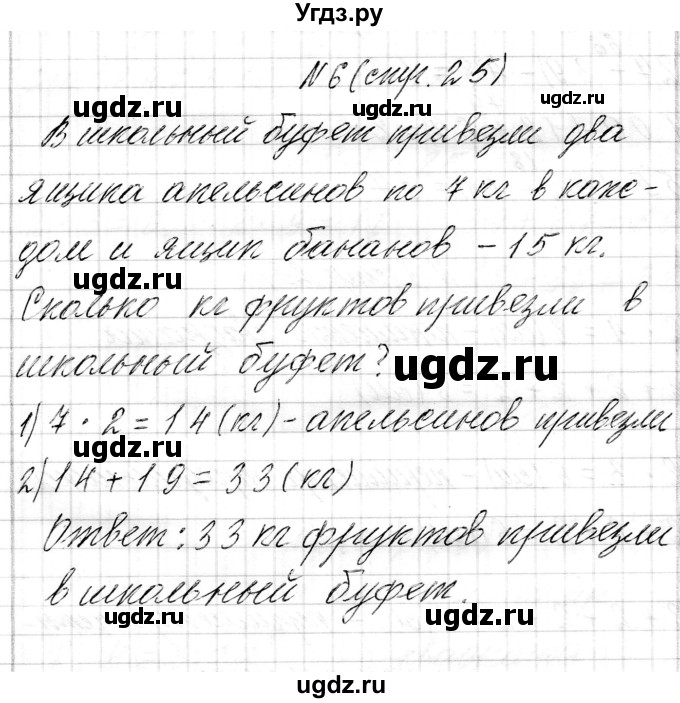 Угдз.ру
№6 (стр. 25)
ugdz.ru ugdz.ru ugdz.ru
В школьный буфет привезли два
ящика апельсинов по 7 кг в каж-
дом и ящик бананов - 15 кг.
ugdz.ru ugdz.ru
Сколько кг фруктов привезли в
школьный буфет?
ugdz.ru
1) 7 · 2 = 14 (кг) - апельсинов привезли
ugdz.ru
2) 14 + 19 = 33 (кг)
Ответ: 33 кг фруктов привезли
в школьный буфет.
ugdz.ru ugdz.ru
ugdz.ru